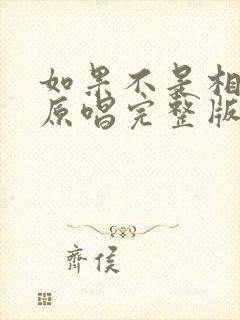 如果不是相
原唱完整版
齊侯